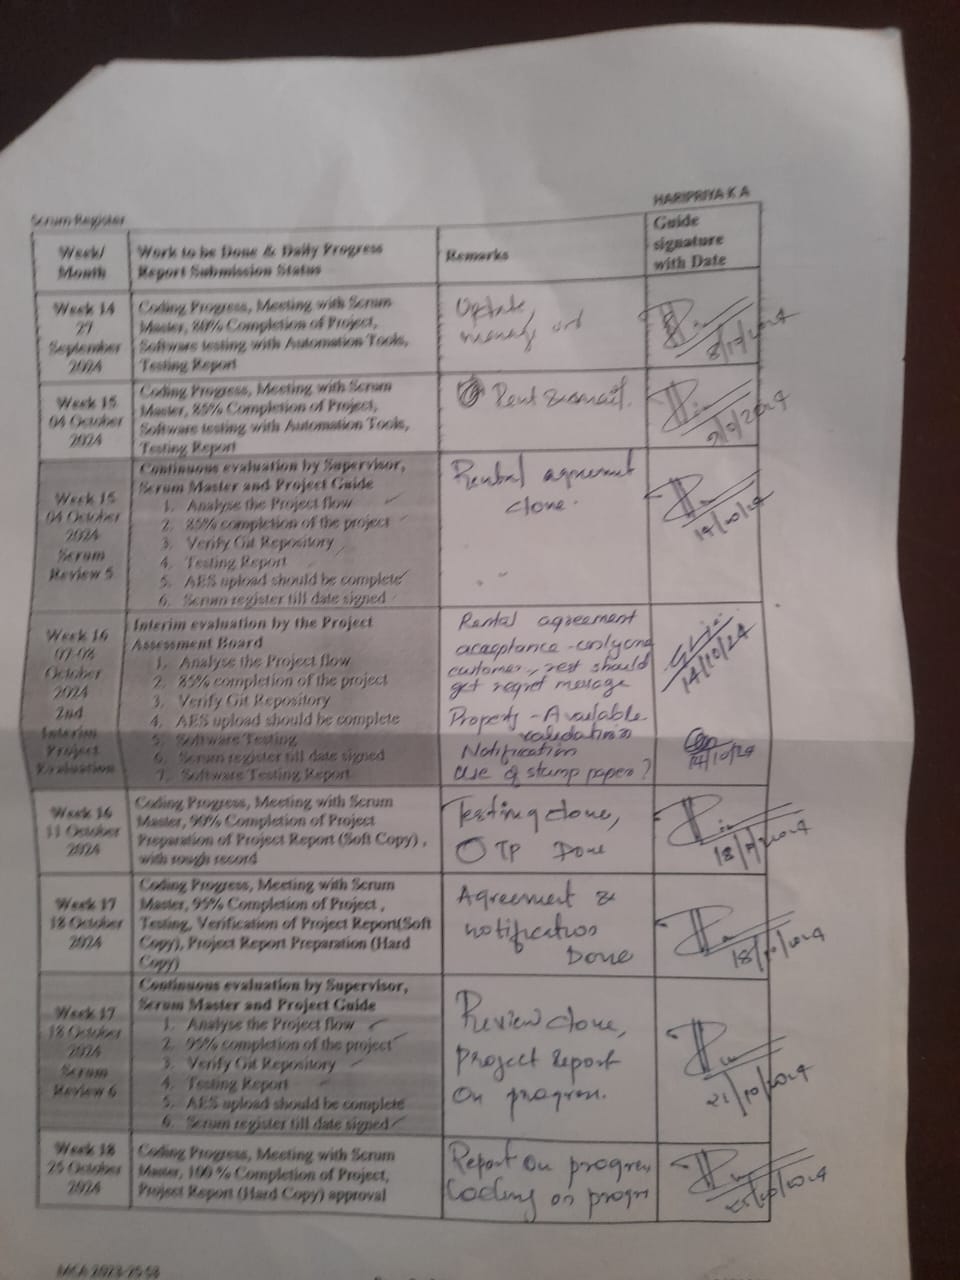 HARIPRIYA K A
Scrum Register
Week/
Month
Work to be Done & Daily Progress
Report Submission Status
Remarks
Guide
signature
with Date
Week 14
27
September
2024
Coding Progress, Meeting with Scrum
Master, 80% Completion of Project,
Software testing with Automation Tools,
Testing Report
Update
Week 15
04 October
2024
Coding Progress, Meeting with Scrum
Master, 85% Completion of Project,
Software testing with Automation Tools,
Testing Report
Rent
Week 15
04 October
2024
Scrum
Review 5
Continuous evaluation by Supervisor,
Scrum Master and Project Guide
1. Analyse the Project flow
2. 85% completion of the project
3. Verify Git Repository
4. Testing Report
5. AES upload should be complete
6. Scrum register till date signed
Rental agreement
done.
14/10/24
Week 16
07-08
October
2024
2nd
Interim
Project
Evaluation
Interim evaluation by the Project
Assessment Board
1. Analyse the Project flow
2. 85% completion of the project
3. Verify Git Repository
4. AES upload should be complete
5. Software Testing
6. Scrum register till date signed
7. Software Testing Report
Rental agreement
acceptance - only one
customer, rest should
get regret message
Property - Available
validation
Notification
use of stamp paper?
14/10/24
14/10/24
Week 16
11 October
2024
Coding Progress, Meeting with Scrum
Master, 90% Completion of Project
Preparation of Project Report (Soft Copy) ,
with rough record
Testing done,
OTP Done
Week 17
18 October
2024
Coding Progress, Meeting with Scrum
Master, 95% Completion of Project ,
Testing, Verification of Project Report(Soft
Copy), Project Report Preparation (Hard
Copy)
Agreement &
notification
Done
18/10/2024
Week 17
18 October
2024
Scrum
Review 6
Continuous evaluation by Supervisor,
Scrum Master and Project Guide
1. Analyse the Project flow
2. 95% completion of the project
3. Verify Git Repository
4. Testing Report
5. AES upload should be complete
6. Scrum register till date signed
Review done,
Project Report
On progress.
21/10/2024
Week 18
25 October
2024
Coding Progress, Meeting with Scrum
Master, 100 % Completion of Project,
Project Report (Hard Copy) approval
Report On progress
Coding on progr
25/10/2024
MCA 2023-25 S3